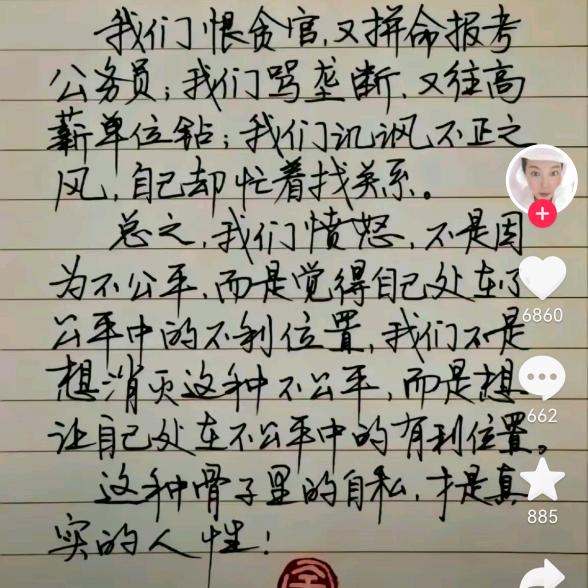 我们恨贪官,又拼命报考
公务员;我们骂垄断,又往高
薪单位钻;我们讥讽不正之
风,自己却忙着找关系。
总之,我们愤怒,不是因
为不公平,而是觉得自己处在不
公平中的不利位置,我们不是
想消灭这种不公平,而是想
让自己处在不公平中的有利位置。
这种骨子里的自私,才是真
实的人性!
6860
662
885